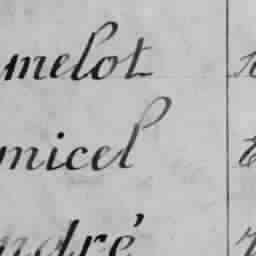 umelot
micel
ndré